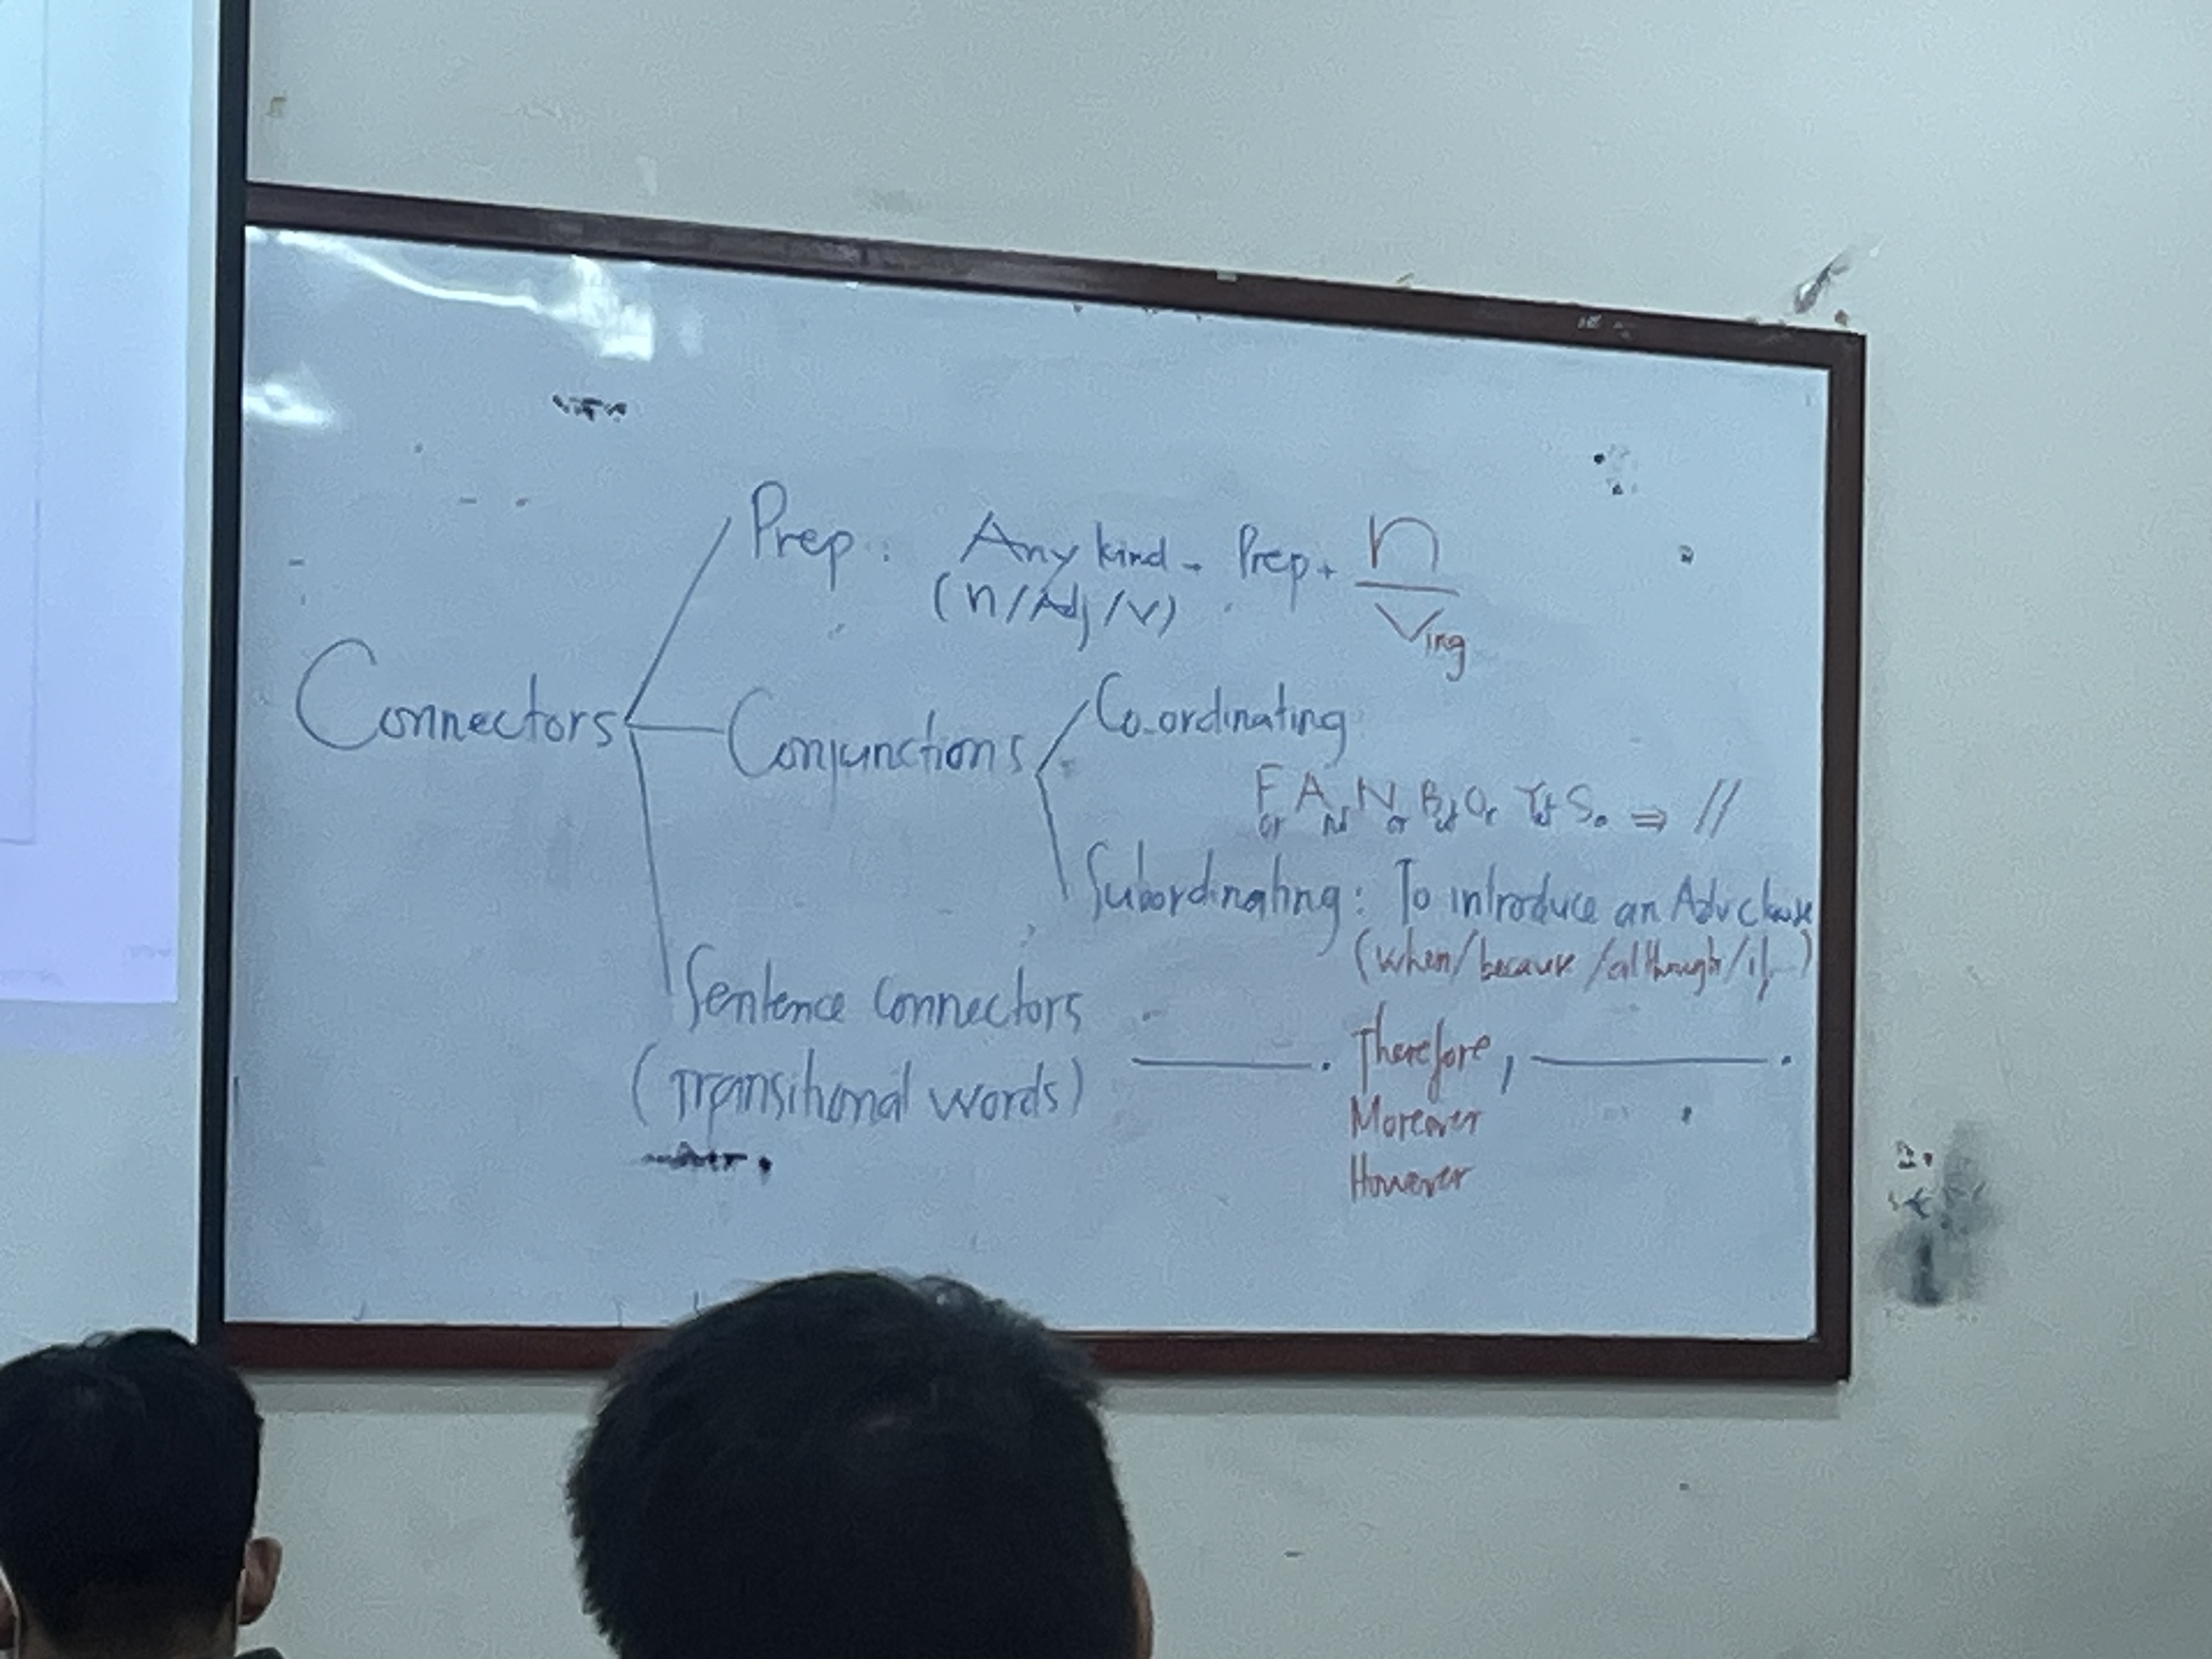 Prep: Any kind - Prep + n
(n/Adj/v) Ving
Connectors
Conjunctions
Co-ordinating
For And Nor But Or Yet So ⇒ //
Subordinating: To introduce an Adv clause
(when/because/although/if, )
Sentence connectors
(Transitional words)
. Therefore, .
Moreover
However